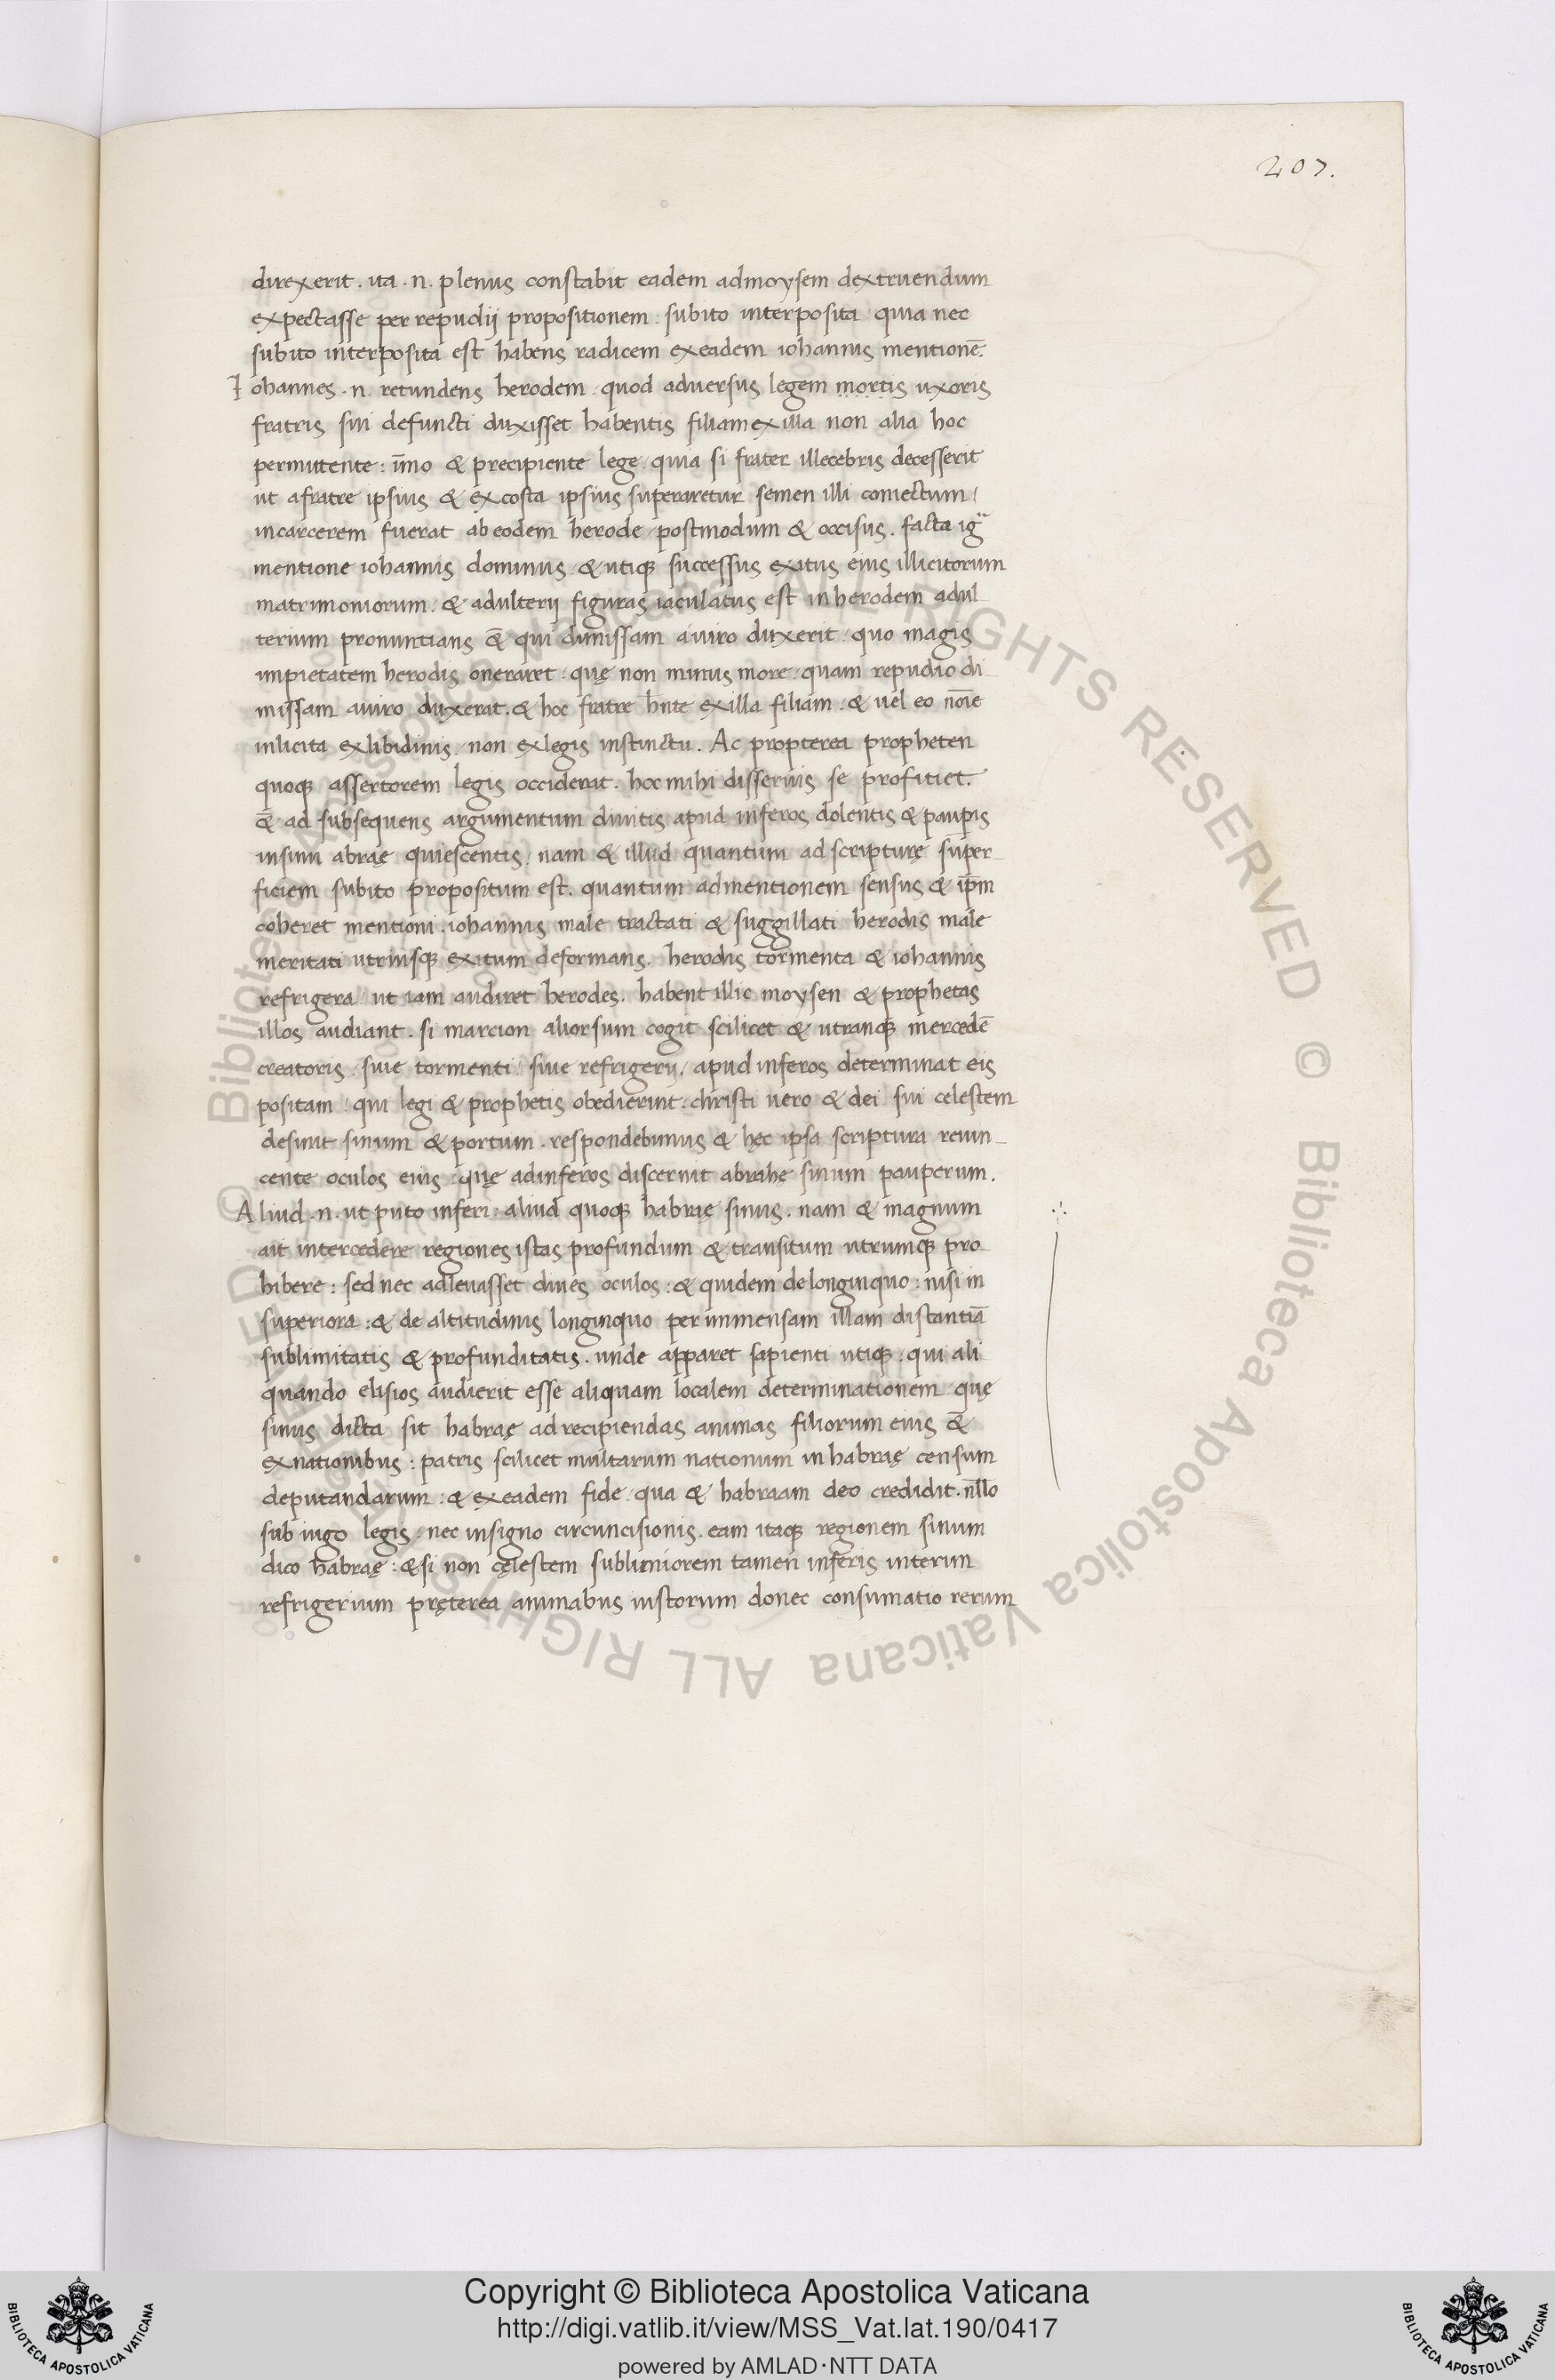 207.
direxerit. ita. n. plenius constabit eadem admoysem dextruendum
expectasse per repudij propositionem: subito interposita: quia nec
subito interposita est habens radicem exeadem iohannis mentionē.
Iohannes. n. retundens herodem: quod adversus legem mortis uxoris
fratris sui defuncti duxisset habentis filiam exilla non alia hoc
permittente: īmo & precipiente lege: quia si frater illecebris decesserit
ut afratre ipsius & excosta ipsius superaretur semen illi coniectum/
incarcerem fuerat abeodem herode/ postmodum & occisus. facta ig̃
mentione iohannis dominus. & utiqꝫ successus exitus eius illicitorum
matrimoniorum. & adulterij figuras iaculatus est inherodem adul
terium pronuntians & qui dimissam auiro duxerit: quo magis
impietatem herodis oneraret: quę non minus more: quam repudio di
missam auiro duxerat. & hoc fratre hn̄te exilla filiam. & uel eo noīe
inlicita exlibidinis. non exlegis instinctu. Ac propterea propheten
quoqꝫ assertorem legis occiderat. hoc mihi disseruis se profitiet.
& ad subsequens argumentum diuitis apud inferos dolentis & paupis
insinu abraę quiescentis. nam & illud quantum ad scripturę super
ficiem subito propositum est. quantum admentionem sensus & ip̄m
coheret mentioni. iohannis male tractati & suggillati herodis male
meritati utriusqꝫ exitum deformans. herodis tormenta & iohannis
refrigera/ ut iam audiret herodes. habent illic moysen & prophetas
illos audiant. si marcion aliorsum cogit scilicet & utranqꝫ mercedē
creatoris/ siue tormenti/ siue refrigerij/ apud inferos determinat eis
positam: qui legi & prophetis obedierint. christi uero & dei sui celestem
desinit sinum & portum. respondebimus & hęc ipsa scriptura reuin
cente oculos eius: quę adinferos discernit abrahę sinum pauperum.
Aliud. n. ut puto inferi: aliud quoqꝫ habraę sinus. nam & magnum
ait intercedere regiones istas profundum & transitum utrumqꝫ pro
hibere: sed nec adleuasset diues oculos: & quidem delonginquo: nisi in
superiora: & de altitudinis longinquo per immensam illam distantiā
sublimitatis & profunditatis. unde apparet sapienti utiqꝫ: qui ali
quando elisios audierit esse aliquam localem determinationem: quę
sinus dicta sit habraę adrecipiendas animas filiorum eius &
exnationibus: patris scilicet multarum nationum inhabraę censum
deputandarum: & exeadem fide: qua & habraam deo credidit. nllō
sub iugo legis: nec insigno circuncisionis. eam itaqꝫ regionem sinum
dico habraę: & si non cęlestem sublimiorem tamen inferis interim
refrigerium pręterea animabus iustorum donec consumatio rerum
Copyright © Biblioteca Apostolica Vaticana
http://digi.vatlib.it/view/MSS_Vat.lat.190/0417
powered by AMLAD·NTT DATA